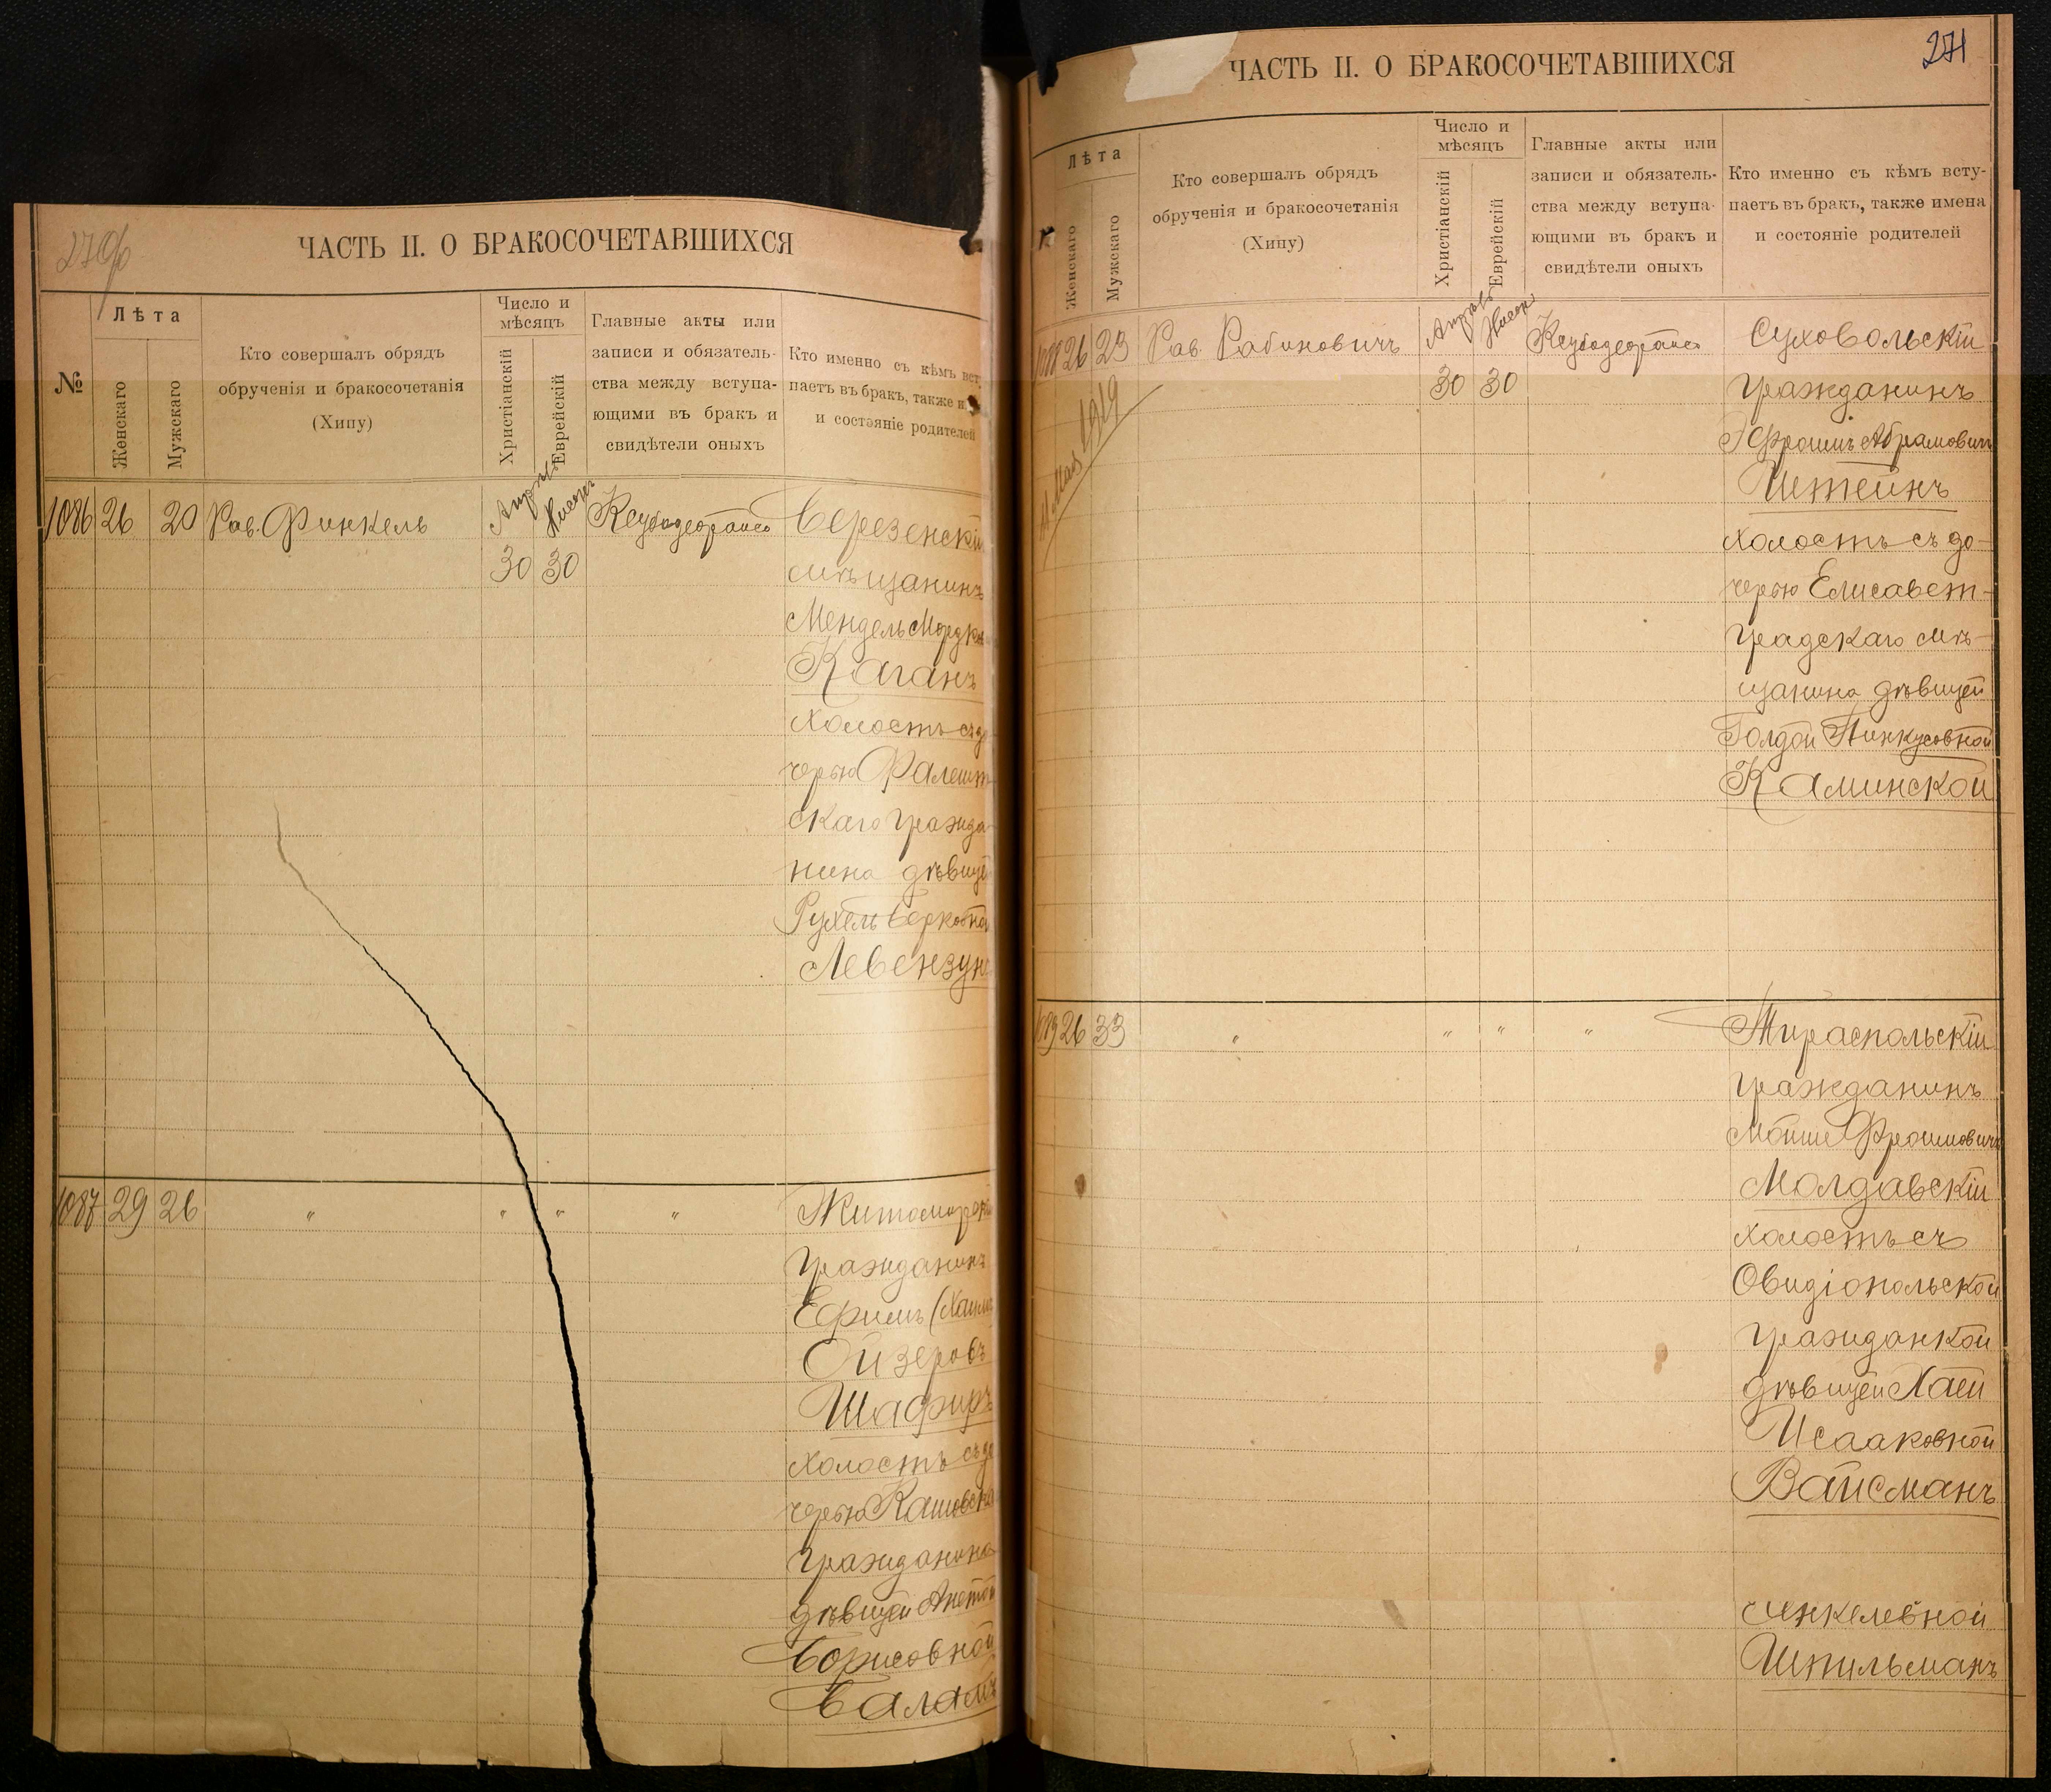 270об
ЧАСТЬ II. О БРАКОСОЧЕТАВШИХСЯ
№
Лѣта
Женскаго
Мужскаго
Кто совершалъ обрядъ
обрученія и бракосочетанія
(Хипу)
Число и
мѣсяцъ
Христіанскій
Еврейскій
Главные акты или
записи и обязатель-
ства между вступа-
ющими въ бракъ и
свидѣтели оныхъ
Кто именно съ кѣмъ вст
паетъ въ бракъ, также и
и состояніе родителей
1086 26 20 Рав. Финкель Апрѣль Нисонъ
30 30
Березенскій
мѣщанинъ
Мендель Мордко
Каганъ
холостъ съ до
черью Фалешт
скаго гражда-
нина дѣвицей
Рухель Берковной
Левензун
1087 29 26 " " " " Житомирскій
гражданинъ
Ефимъ (Хаимъ
Ойзеровъ
Шафиръ
холостъ съ до
черью
гражданина
дѣвицей Анетой
Борисовной
Балабъ
271
ЧАСТЬ II. О БРАКОСОЧЕТАВШИХСЯ
Лѣта
Женскаго
Мужскаго
Кто совершалъ обрядъ
обрученія и бракосочетанія
(Хипу)
Число и
мѣсяцъ
Христіанскій
Еврейскій
Главные акты или
записи и обязатель-
ства между вступа-
ющими въ бракъ и
свидѣтели оныхъ
Кто именно съ кѣмъ всту-
паетъ въ бракъ, также имена
и состояніе родителей
1088 26 23 Рав. Рабиновичъ Апрѣль Нисонъ Суховольскій
30 30 гражданинъ
Мая 1919
Фроимъ Абрамовичъ
Штейнъ
холостъ съ до-
черью Елисавет-
градскаго мѣ-
щанина дѣвицей
Голдой Пинкусовной
Каминской
1089 26 33 " " " " Тираспольскій
гражданинъ
Мойше Фроимовичъ
Молдавскій
холостъ съ
Овидіопольской
гражданкой
дѣвицей Хаей
Исааковной
Вайсманъ
Янкелевной
Шпильманъ